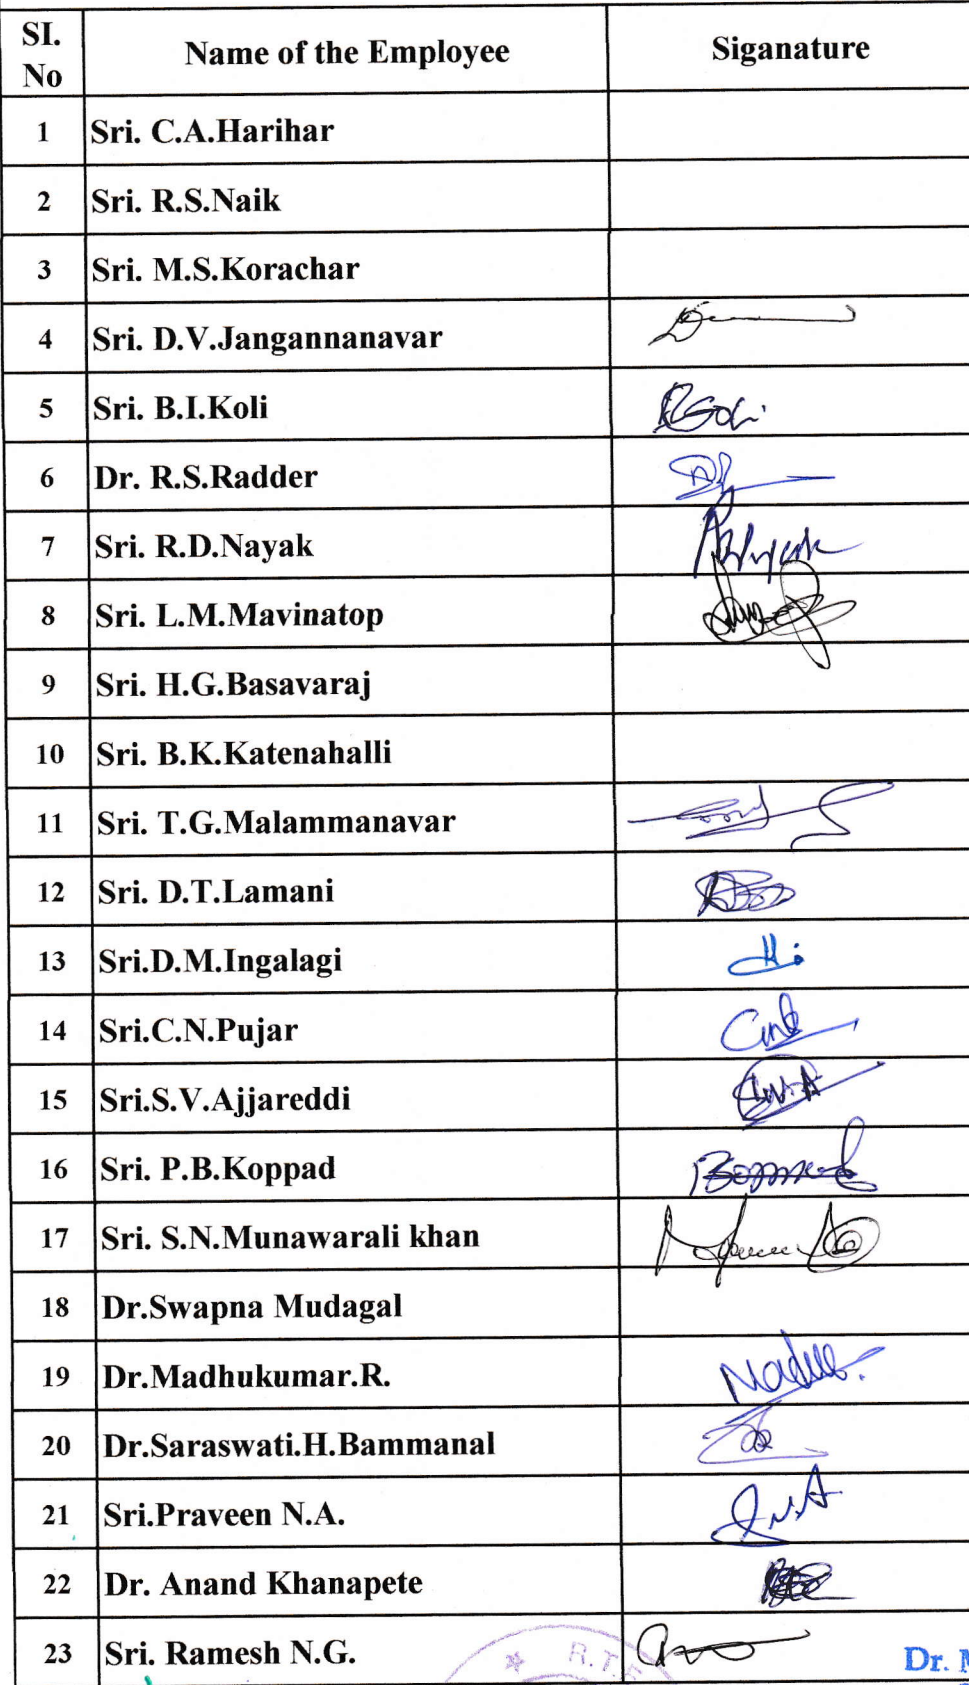 SI. No Name of the Employee Siganature
1 Sri. C.A.Harihar
2 Sri. R.S.Naik
3 Sri. M.S.Korachar
4 Sri. D.V.Jangannanavar
5 Sri. B.I.Koli
6 Dr. R.S.Radder
7 Sri. R.D.Nayak
8 Sri. L.M.Mavinatop
9 Sri. H.G.Basavaraj
10 Sri. B.K.Katenahalli
11 Sri. T.G.Malammanavar
12 Sri. D.T.Lamani
13 Sri.D.M.Ingalagi
14 Sri.C.N.Pujar
15 Sri.S.V.Ajjareddi
16 Sri. P.B.Koppad
17 Sri. S.N.Munawarali khan
18 Dr.Swapna Mudagal
19 Dr.Madhukumar.R.
20 Dr.Saraswati.H.Bammanal
21 Sri.Praveen N.A.
22 Dr. Anand Khanapete
23 Sri. Ramesh N.G.
R.T.
Dr.